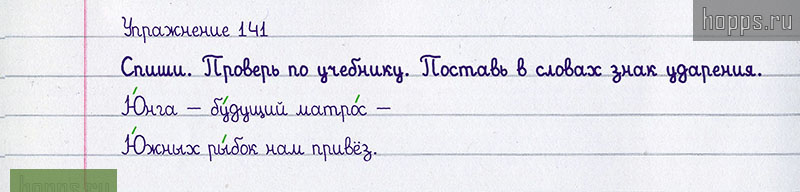 hopps.ru
Упражнение 141
Спиши. Проверь по учебнику. Поставь в словах знак ударения.
Ю́нга – бу́дущий матро́с –
Ю́жных ры́бок нам привёз.
hopps.ru